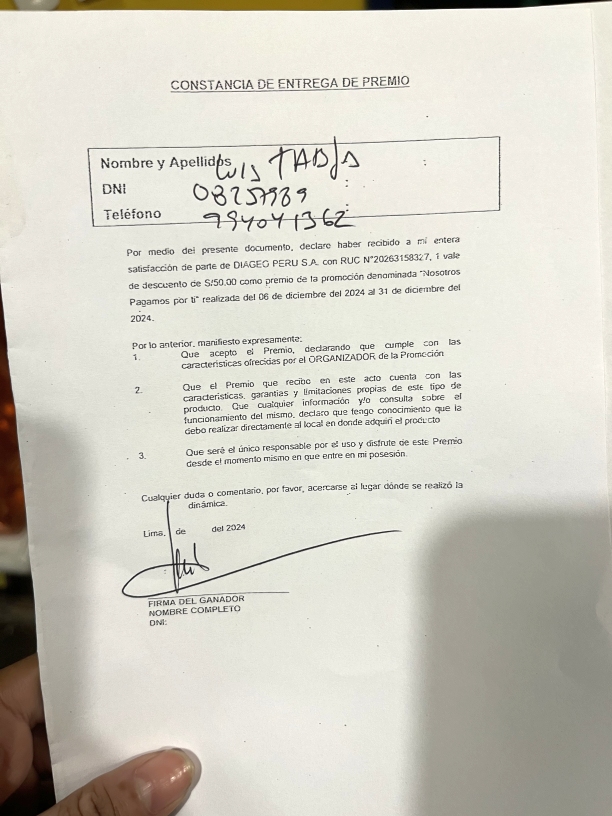 CONSTANCIA DE ENTREGA DE PREMIO
Nombre y Apellidos Luis
DNI 08257989
Teléfono 994041362
Por medio del presente documento, declaro haber recibido a mi entera
satisfacción de parte de DIAGEO PERU S.A. con RUC N°20263158327, 1 vale
de descuento de S/50.00 como premio de la promoción denominada "Nosotros
Pagamos por ti" realizada del 06 de diciembre del 2024 al 31 de diciembre del
2024.
Por lo anterior, manifiesto expresamente:
1. Que acepto el Premio, declarando que cumple con las
características ofrecidas por el ORGANIZADOR de la Promoción
2. Que el Premio que recibo en este acto cuenta con las
características, garantías y limitaciones propias de este tipo de
producto. Que cualquier información y/o consulta sobre el
funcionamiento del mismo, declaro que tengo conocimiento que la
debo realizar directamente al local en donde adquirí el producto
3. Que seré el único responsable por el uso y disfrute de este Premio
desde el momento mismo en que entre en mi posesión.
Cualquier duda o comentario, por favor, acercarse al lugar dónde se realizó la
dinámica.
Lima, de del 2024
FIRMA DEL GANADOR
NOMBRE COMPLETO
DNI: